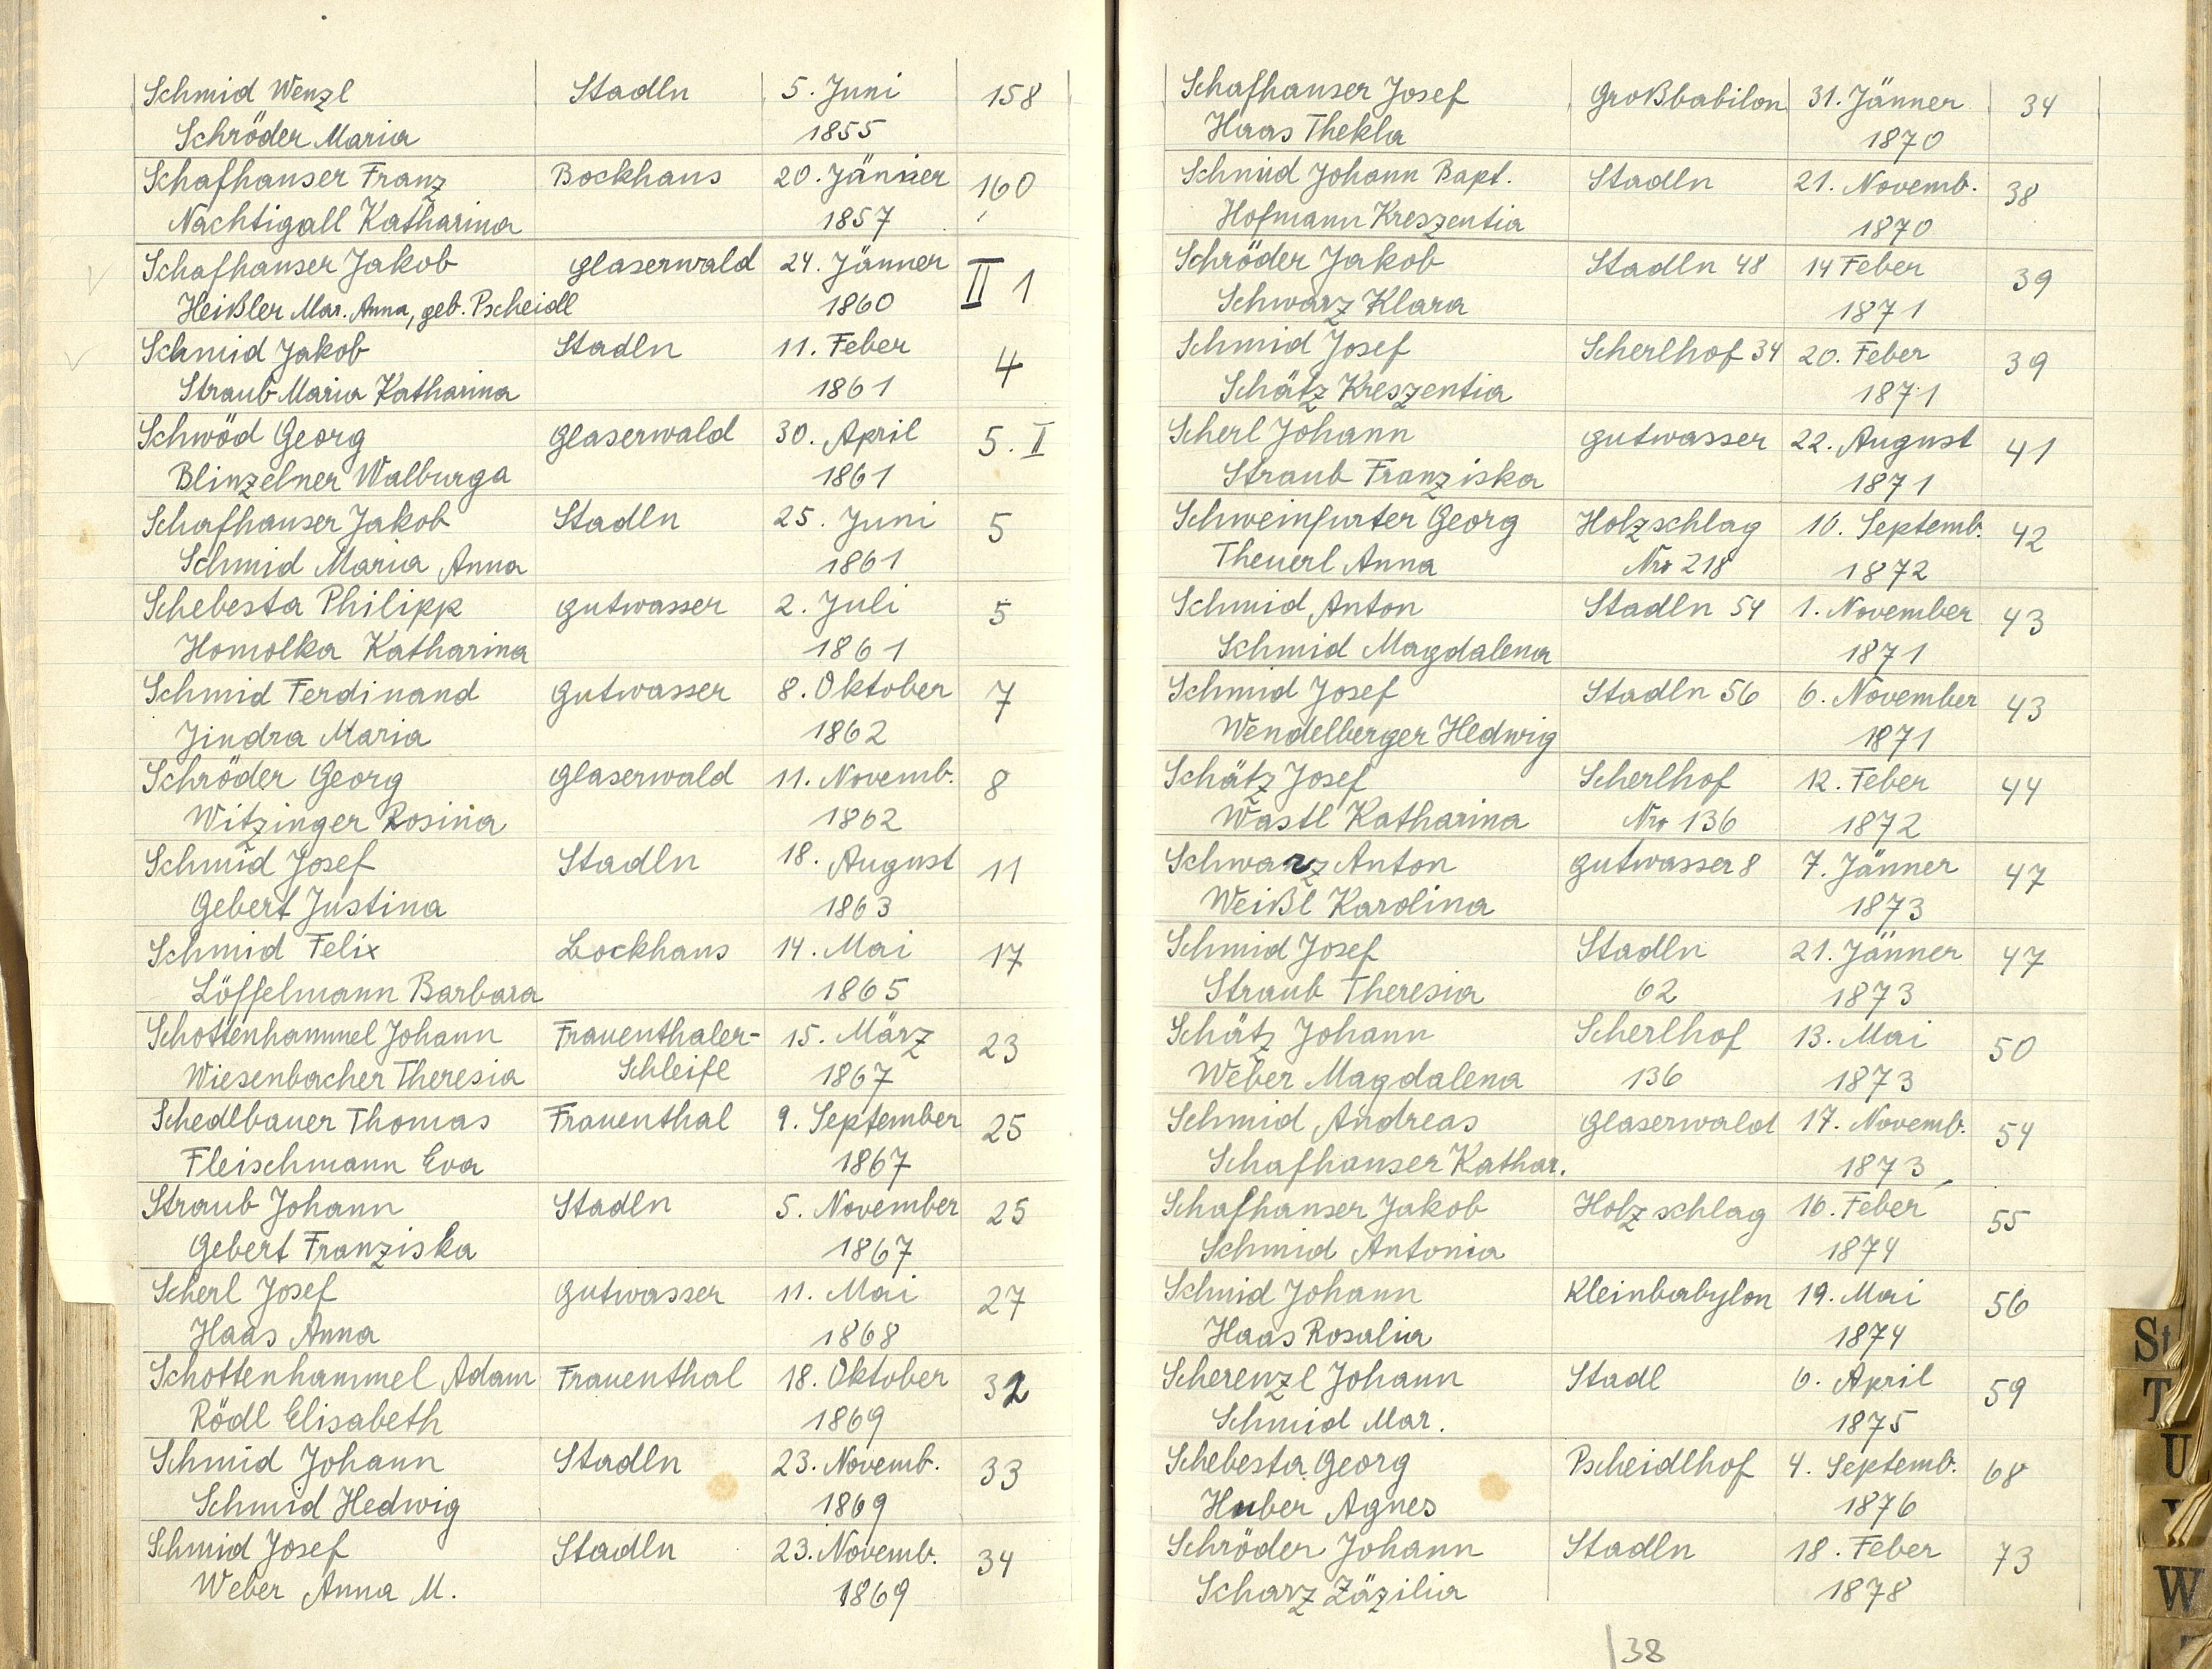 Schmid Wenzl Stadln 5. Juni 158
Schröder Maria 1855
Schafhauser Franz Bockhaus 20. Jänner 160
Nachtigall Katharina 1857
Schafhauser Jakob Glaserwald 24. Jänner II 1
Heißler Mar. Anna, geb. Pscheidl 1860
Schmid Jakob Stadln 11. Feber 4
Straub Maria Katharina 1861
Schwöd Georg Glaserwald 30. April 5. I
Blinzelner Walburga 1861
Schafhauser Jakob Stadln 25. Juni 5
Schmid Maria Anna 1861
Schebesta Philipp Gutwasser 2. Juli 5
Homolka Katharina 1861
Schmid Ferdinand Gutwasser 8. Oktober 7
Jindra Maria 1862
Schröder Georg Glaserwald 11. Novemb. 8
Witzinger Rosina 1862
Schmid Josef Stadln 18. August 11
Gebert Justina 1863
Schmid Felix Bockhaus 14. Mai 17
Löffelmann Barbara 1865
Schottenhammel Johann Frauenthaler- 15. März 23
Wiesenbacher Theresia Schleife 1867
Schedlbauer Thomas Frauenthal 9. September 25
Fleischmann Eva 1867
Straub Johann Stadln 5. November 25
Gebert Franziska 1867
Scherl Josef Gutwasser 11. Mai 27
Haas Anna 1868
Schottenhammel Adam Frauenthal 18. Oktober 32
Rödl Elisabeth 1869
Schmid Johann Stadln 23. Novemb. 33
Schmid Hedwig 1869
Schmid Josef Stadln 23. Novemb. 34
Weber Anna M. 1869
Schafhauser Josef Großbabilon 31. Jänner 34
Haas Thekla 1870
Schmid Johann Bapt. Stadln 21. Novemb. 38
Hofmann Kreszentia 1870
Schröder Jakob Stadln 48 14 Feber 39
Schwarz Klara 1871
Schmid Josef Scherlhof 34 20. Feber 39
Schätz Kreszentia 1871
Scherl Johann Gutwasser 22. August 41
Straub Franziska 1871
Schweinfurter Georg Holzschlag 16. Septemb. 42
Theuerl Anna Nro 218 1872
Schmid Anton Stadln 54 1. November 43
Schmid Magdalena 1871
Schmid Josef Stadln 56 6. November 43
Wendelberger Hedwig 1871
Schätz Josef Scherlhof 12. Feber 44
Wastl Katharina Nro 136 1872
Schwarz Anton Gutwasser 8 7. Jänner 47
Weißl Karolina 1873
Schmid Josef Stadln 21. Jänner 47
Straub Theresia 62 1873
Schätz Johann Scherlhof 13. Mai 50
Weber Magdalena 136 1873
Schmid Andreas Glaserwald 17. Novemb. 54
Schafhauser Kathar. 1873
Schafhauser Jakob Holzschlag 16. Feber 55
Schmid Antonia 1874
Schmid Johann Kleinbabylon 19. Mai 56
Haas Rosalia 1874
Scherenzl Johann Stadl 6. April 59
Schmid Mar. 1875
Schebesta Georg Pscheidlhof 4. Septemb. 68
Huber Agnes 1876
Schröder Johann Stadln 18. Feber 73
Scharz Zäzilia 1878
38
St
T
U
W